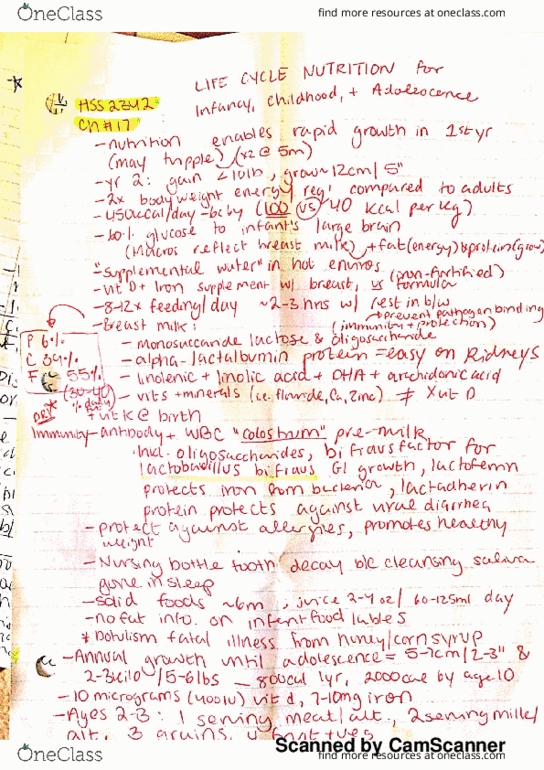 OneClass
find more resources at oneclass.com
LIFE CYCLE NUTRITION for
Infancy, Childhood, + Adolescence
HSS 2342
Ch #17
- nutrition enables rapid growth in 1st yr
(may tripple) (x2 @ 5m)
- yr 2: gain <10lb, grow ~12cm/5"
- 2x body weight energy req' compared to adults
- 450kcal/day - bcby (100 vs 40 kcal per kg)
- 60% glucose to infant's large brain
(Macros reflect breast milk) + fat (energy) & protein (grow)
- "Supplemental water" in hot enviros
(non-fortified)
- vit D + Iron supplement w/ breast, vs formula
- 8-12x feeding/day ~2-3 hrs w/ rest in b/w
→ prevent pathogen binding
- Breast milk: (immunity + protection)
- monosaccaride lactose & oligosaccharide
P 6%
C 39%
F 55%
(30-40
% daily
- alpha-lactalbumin protein = easy on Kidneys
- linolenic + linolic acid + DHA + archidonic acid
- vits + minerals (i.e. flouride, Ca, Zinc) ≠ X vit D
+ vit K @ birth
Immunity - antibody + WBC "colostrum" pre-milk
Incl. oligosaccharides, bifidus factor for
lactobacillus bifidus GI growth, lactoferrin
protects iron from bacteria, lactadherin
protein protects against viral diarrhea
- protect against allergies, promotes healthy
weight
- Nursing bottle tooth decay b/c cleansing saliva
gone in sleep
- solid foods ~6m, juice 2-4 oz/ 60-125ml day
- no fat info. on infant food lables
* botulism fatal illness from honey/corn syrup
- Annual growth until adolescence = 5-7cm/2-3" &
2-3kilo/5-6lbs - 800cal 1yr, 2000cal by age 10
- 10 micrograms (400IU) vit d, 7-10mg iron
- Ages 2-3: 1 serving meat/alt., 2 serving milk/
alt, 3 grains, 4 fruit + veg
Scanned by CamScanner
OneClass
find more resources at oneclass.com